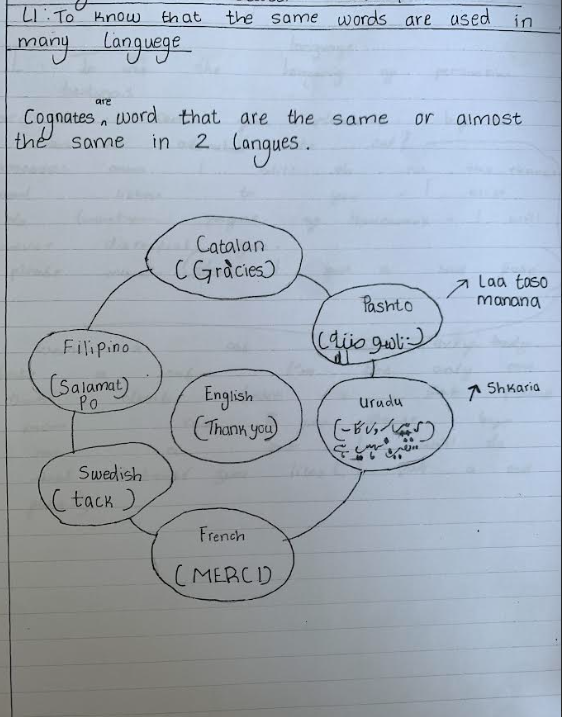 LI: To know that the same words are used in
many languege
are
Cognates ^ word that are the same or almost
the same in 2 langues.
Catalan
(Gràcies)
Pashto
Laa taso
manana
Filipino
(Salamat)
Po
English
(Thank you)
Urudu
Shkaria
Swedish
(tack)
French
(MERCI)